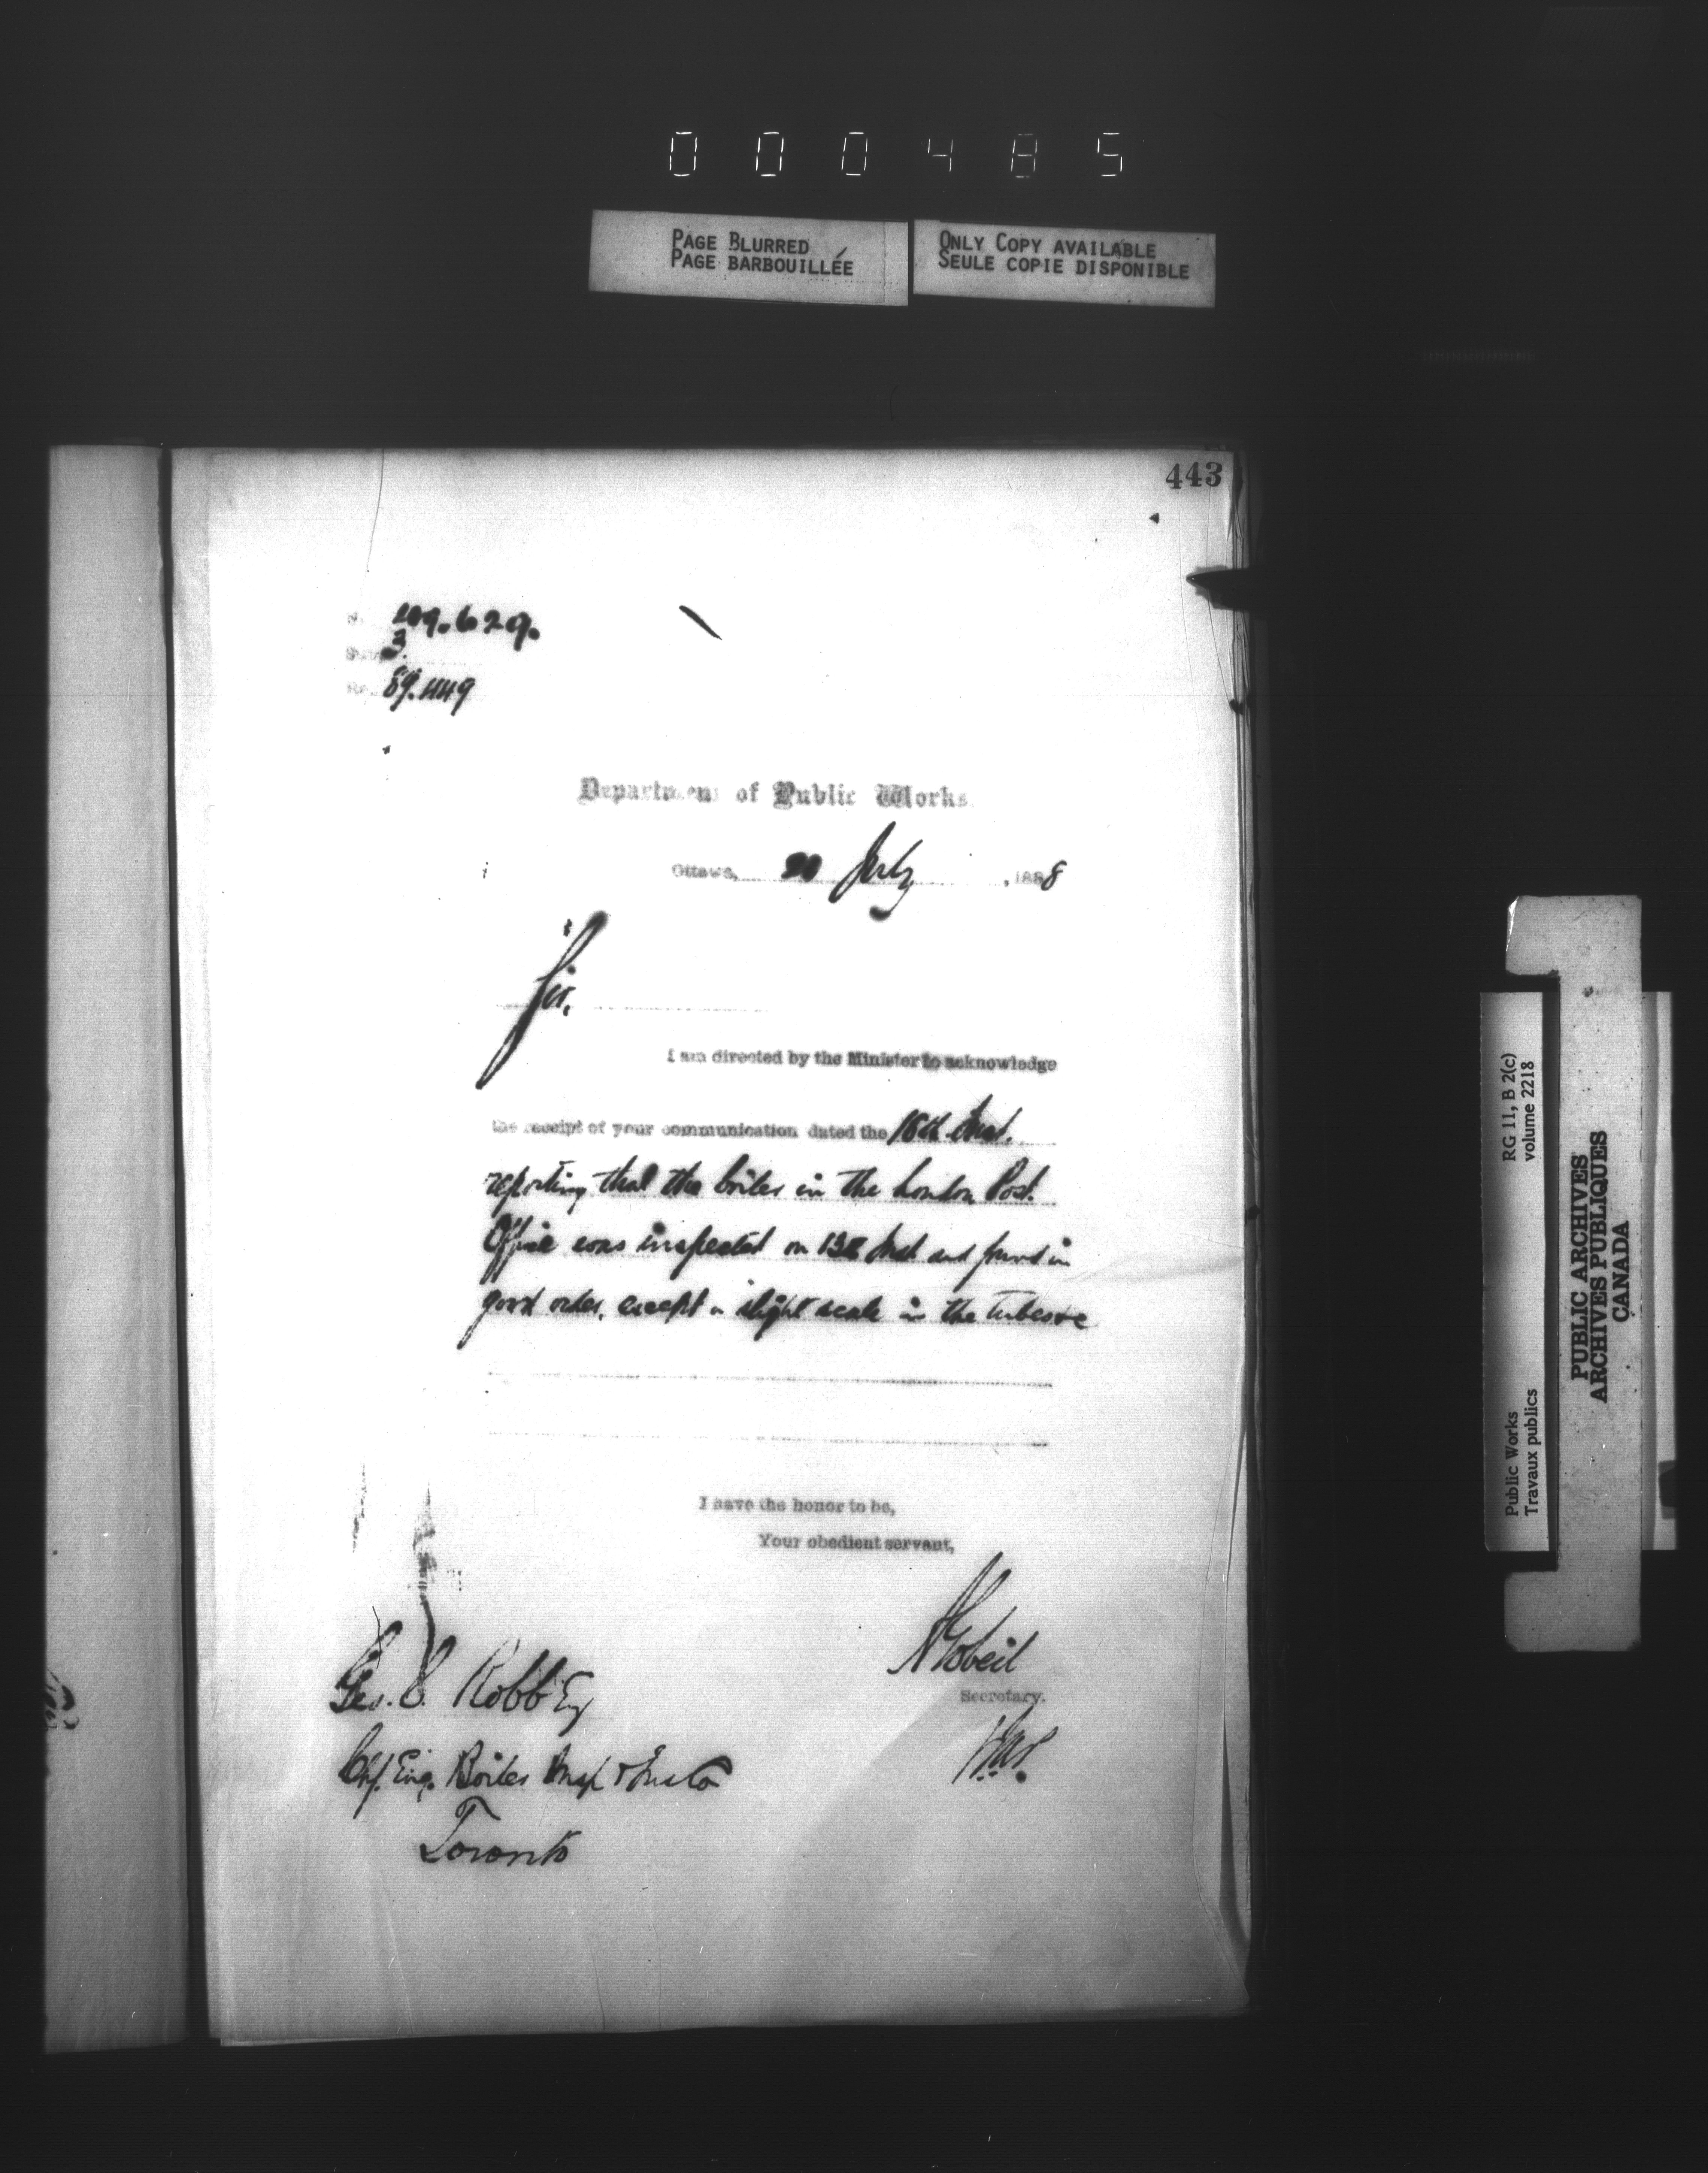 000485
PAGE BLURRED
PAGE BARBOUILLÉE
ONLY COPY AVAILABLE
SEULE COPIE DISPONIBLE
443
629.
3
89.449
Department of Public Works
Ottawa, 20 July, 1888
Sir,
I am directed by the Minister to acknowledge
the receipt of your communication dated the 16th Inst.
reporting that the boiler in the London Post
Office was inspected on 13th Inst and found in
good order, except a slight scale in the tubes &c
I have the honor to be,
Your obedient servant,
A Gobeil
Secretary.
Geo. C. Robb Esq
Chf. Eng. Boiler Insp & Ins Co
Toronto
RG 11, B 2(c)
volume 2218
Public Works
Travaux publics
PUBLIC ARCHIVES
ARCHIVES PUBLIQUES
CANADA